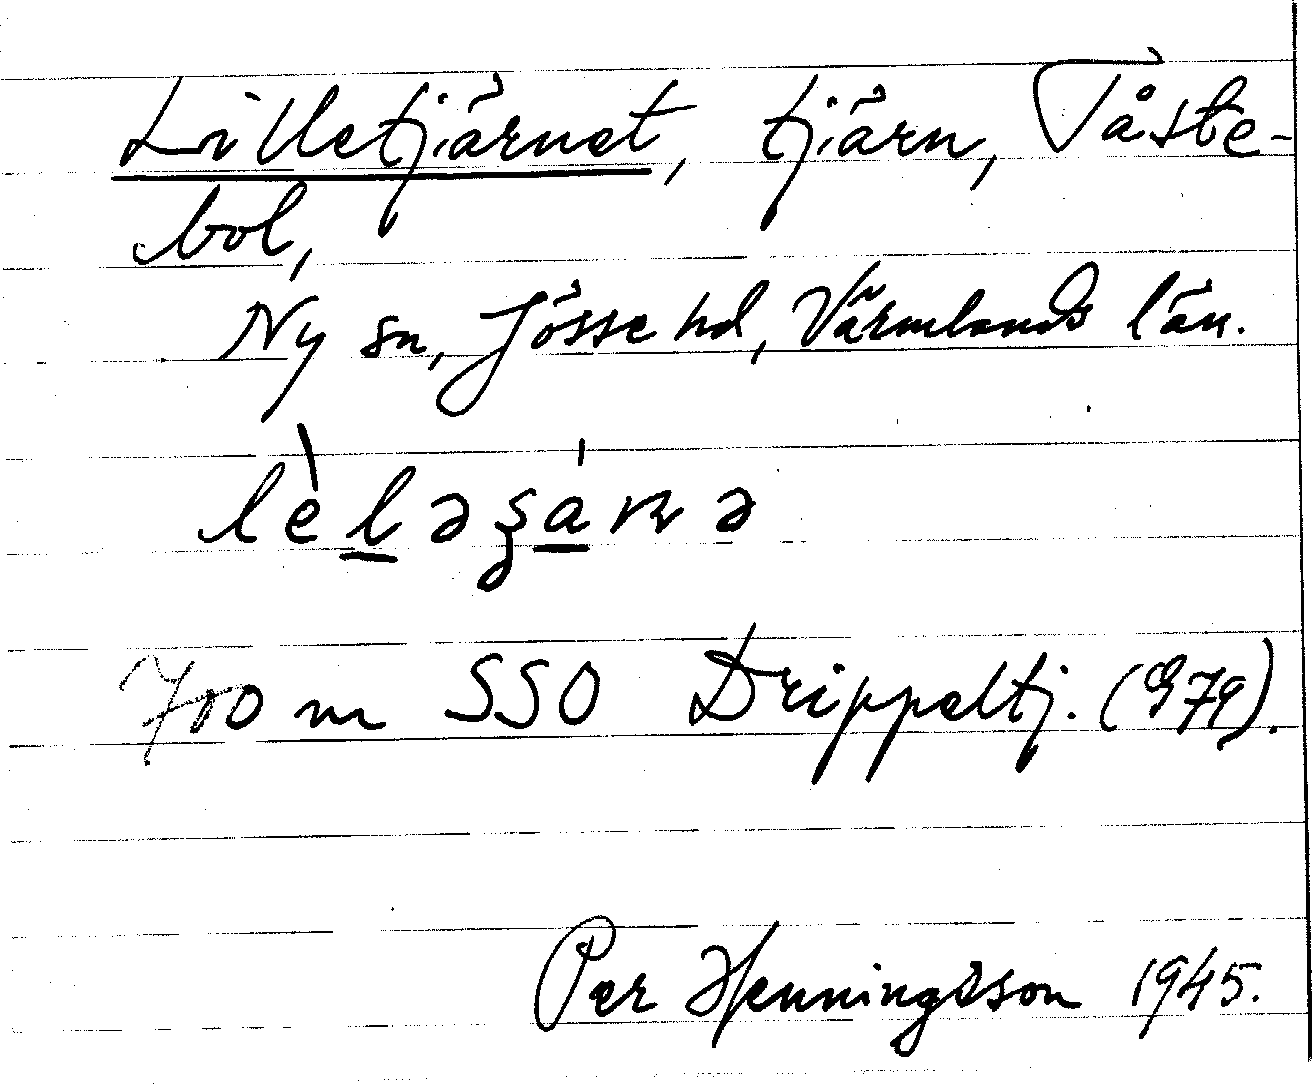 Lilletjärnet, tjärn, Tåste-
bol,
Ny sn, Jösse hd, Värmlands län.
lèləʂánə
700 m SSO Drippeltj. (G79).
Per Henningsson 1945.